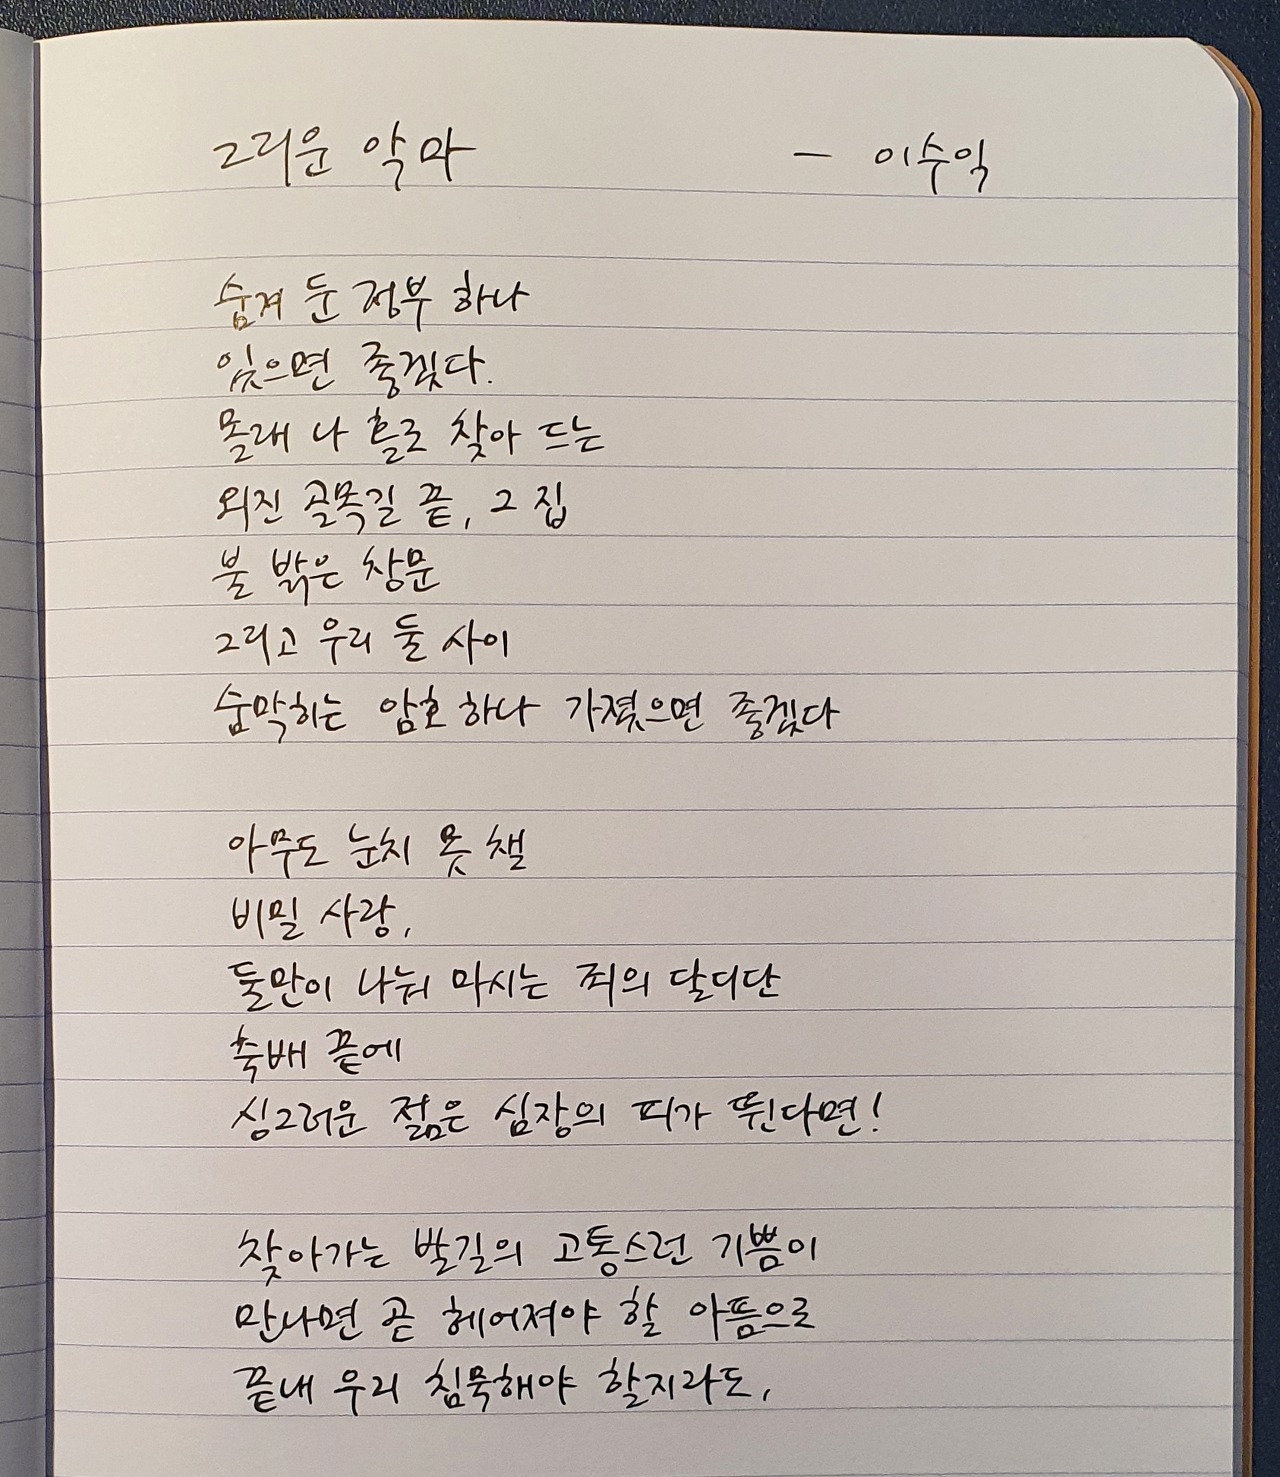 그리운 악마 — 이수익
숨겨 둔 정부 하나
있으면 좋겠다.
몰래 나 홀로 찾아 드는
외진 골목길 끝, 그 집
불 밝은 창문
그리고 우리 둘 사이
숨막히는 암호 하나 가졌으면 좋겠다
아무도 눈치 못 챌
비밀 사랑,
둘만이 나눠 마시는 죄의 달디단
축배 끝에
싱그러운 젊은 심장의 피가 뛴다면!
찾아가는 발길의 고통스런 기쁨이
만나면 곧 헤어져야 할 아픔으로
끝내 우리 침묵해야 할지라도,